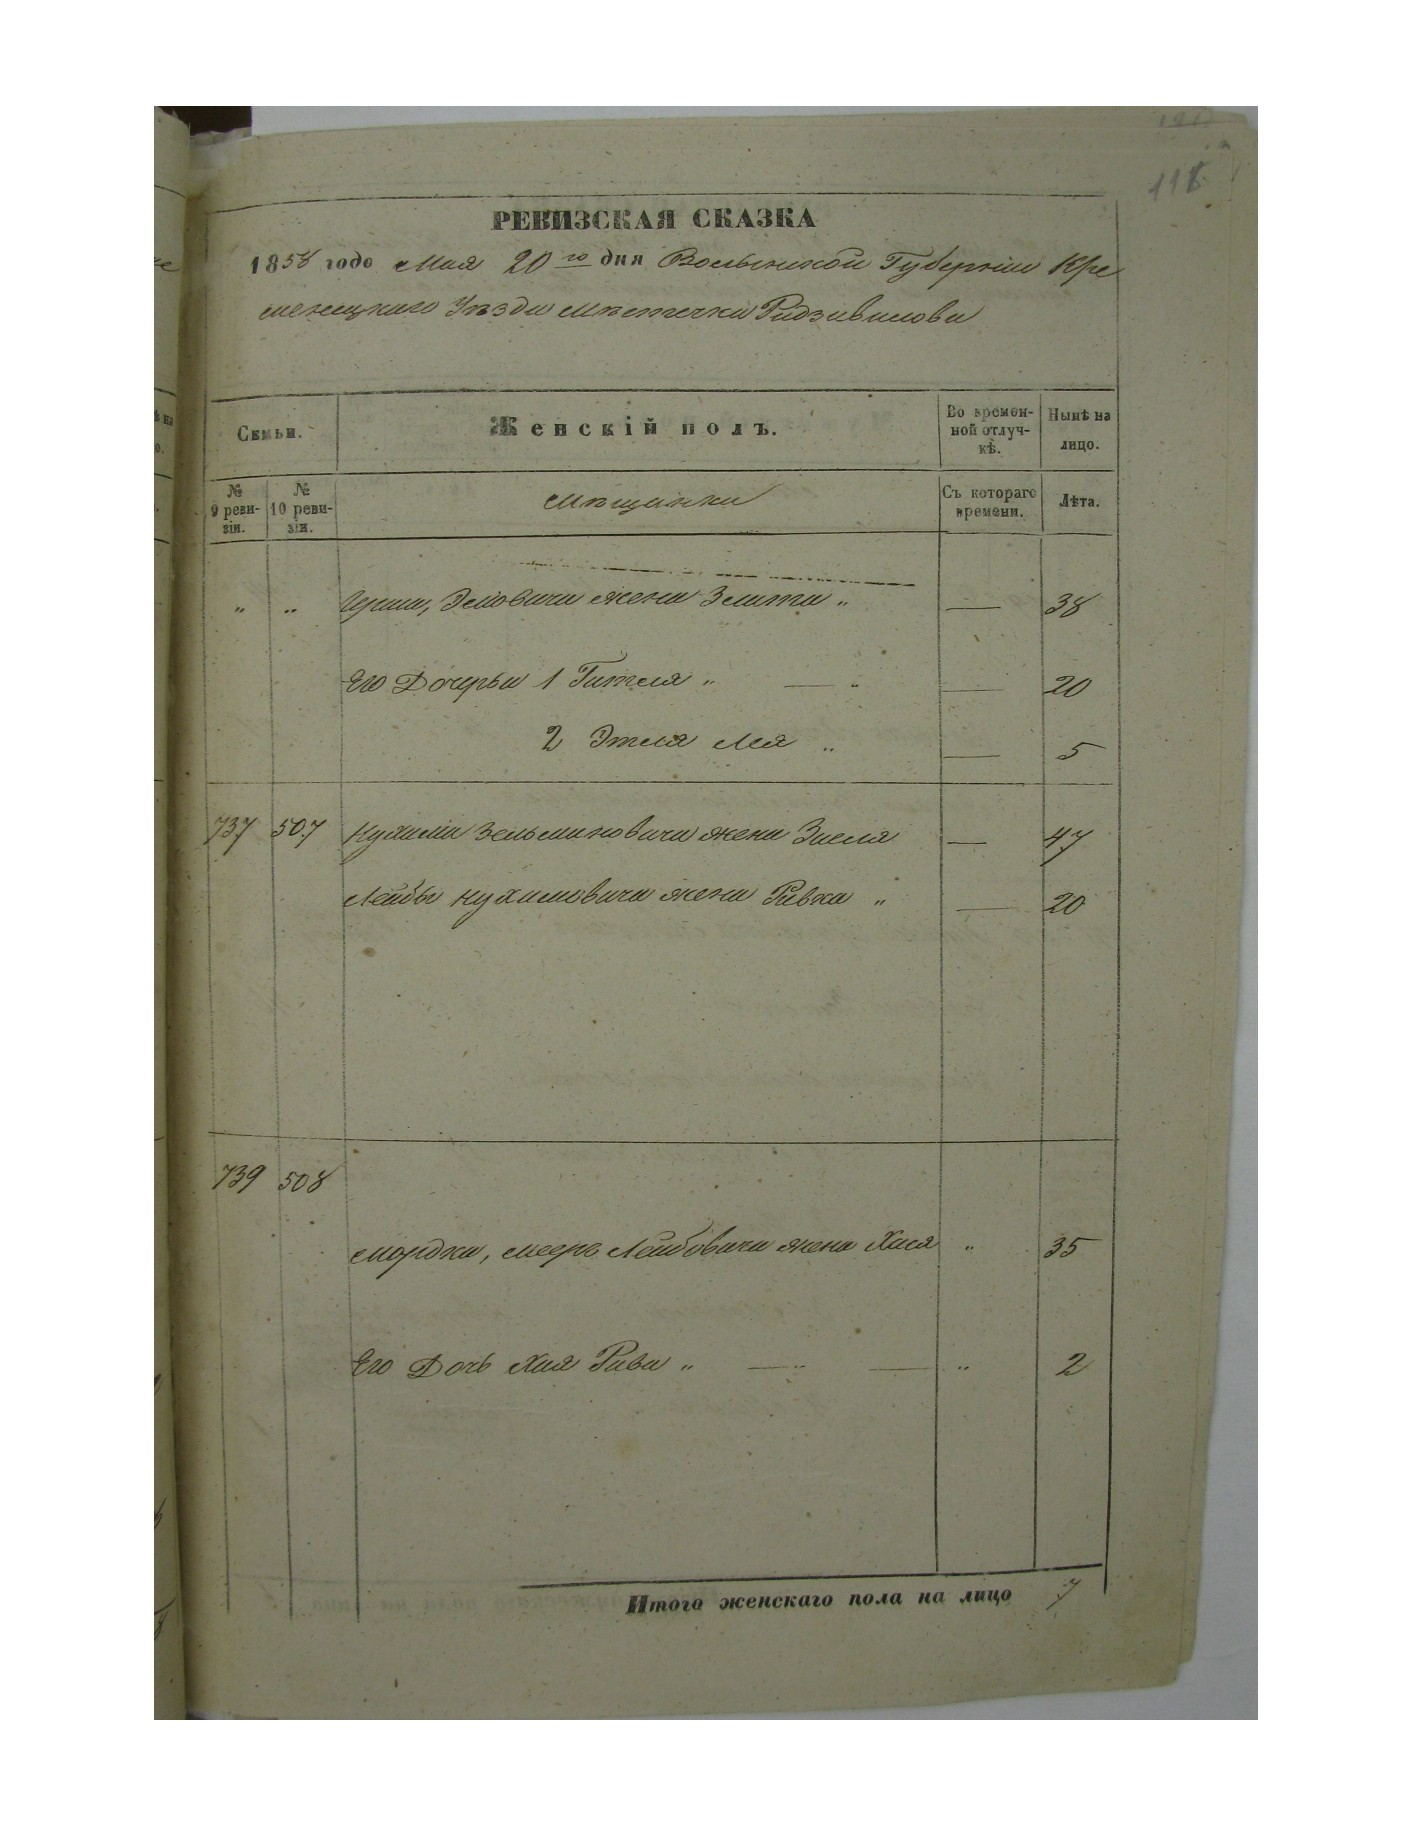 118
РЕВИЗСКАЯ СКАЗКА
1858 годо Мая 20го дня Волынской Губерніи Кре
менецкаго Уѣзда мѣстечка Радзивилова
Семьи.
Женскій полъ.
Во времен-
ной отлуч-
кѣ.
Нынѣ на
лицо.
№
9 реви-
зіи.
№
10 реви-
зіи.
Мѣщанки
Съ котораго
времени.
Лѣта.
„ „ Ицка, Эловича жена Злата „ — 38
Его Дочерьи 1 Гителя „ — „ — 20
2 Этля Лея „ — 5
737 507 Нухима Зельмановича жена Зисля — 47
Лейбы Нухимовича жена Ривка „ — 20
739 508
Мордка, Меера Лейбовича жена Хася „ 35
Его Дочь Хая Рива „ — „ — „ 2
Итого женскаго пола на лицо 7